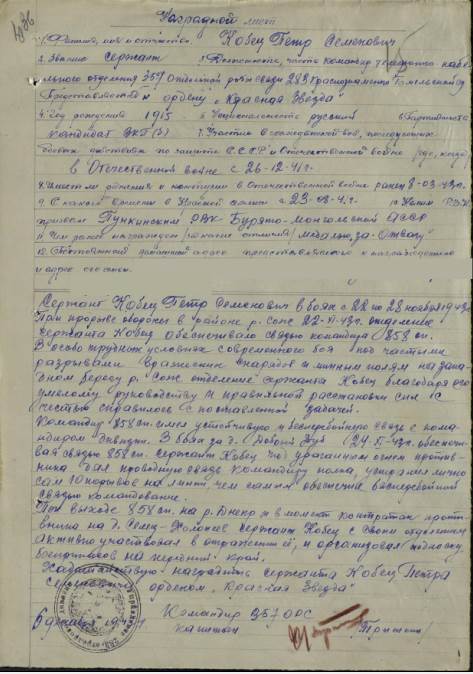 Наградной лист
1. Фамилия, имя и отчество Кобец Петр Семенович
2. Звание Сержант 3. Должность, часть командир
отделения 357 Отдельной роты связи 283 Краснознаменной Гомельской
Представляется к ордену „Красная Звезда"
4. Год рождения 1915 5. Национальность русский 6. Партийность
кандидат ВКП(б) 7. Участие в гражданской войне, последующих
боевых действиях по защите СССР и Отечественной войне (где, когда)
в Отечественной войне с 26-12-41г.
8. Имеет ли ранения и контузии в Отечественной войне ранен 8-03-43г.
9. С какого времени в Красной армии с 23-08-41г. 10. Каким РВК
призван РВК Бурято-Монгольской АССР
11. Чем ранее награжден (за какие отличия) медалью „за Отвагу"
12. Постоянный домашний адрес представляемого к награждению
и адрес его семьи.
Сержант Кобец Петр Семенович в боях с 22 по 28 ноября 1943г.
При прорыве обороны в районе р. Сож 22-XI-43г. отделение
сержанта Кобец обеспечивало связью командира 858 сп.
В особо трудных условиях современного боя под частыми
разрывами вражеских снарядов и минным полям на запа-
дном берегу р. Сож отделение сержанта Кобец благодаря его
умелому руководству и правильной расстановки сил с
честью справилось с поставленной задачей.
Командир 858 сп. имел устойчивую и бесперебойную связь с кома-
ндиром дивизии. В боях за д. 24-XI-43г. обеспечи-
вая связью 858 сп. сержант Кобец под ураганным огнем против-
ника дал проводную связь командиру полка, устранил лично
сам 10 порывов на линии чем самым обеспечил бесперебойной
связью командование.
При выходе 858 сп. на р. Днепр и в момент контратак проти-
вника на д. сержант Кобец с своим отделением
активно участвовал в отражении её, и организовал подноску
боеприпасов на передний край.
Ходатайствую наградить сержанта Кобец Петра
Семеновича орденом „Красная Звезда"
Командир 357 ОРС
капитан
6 декабря 1943г.